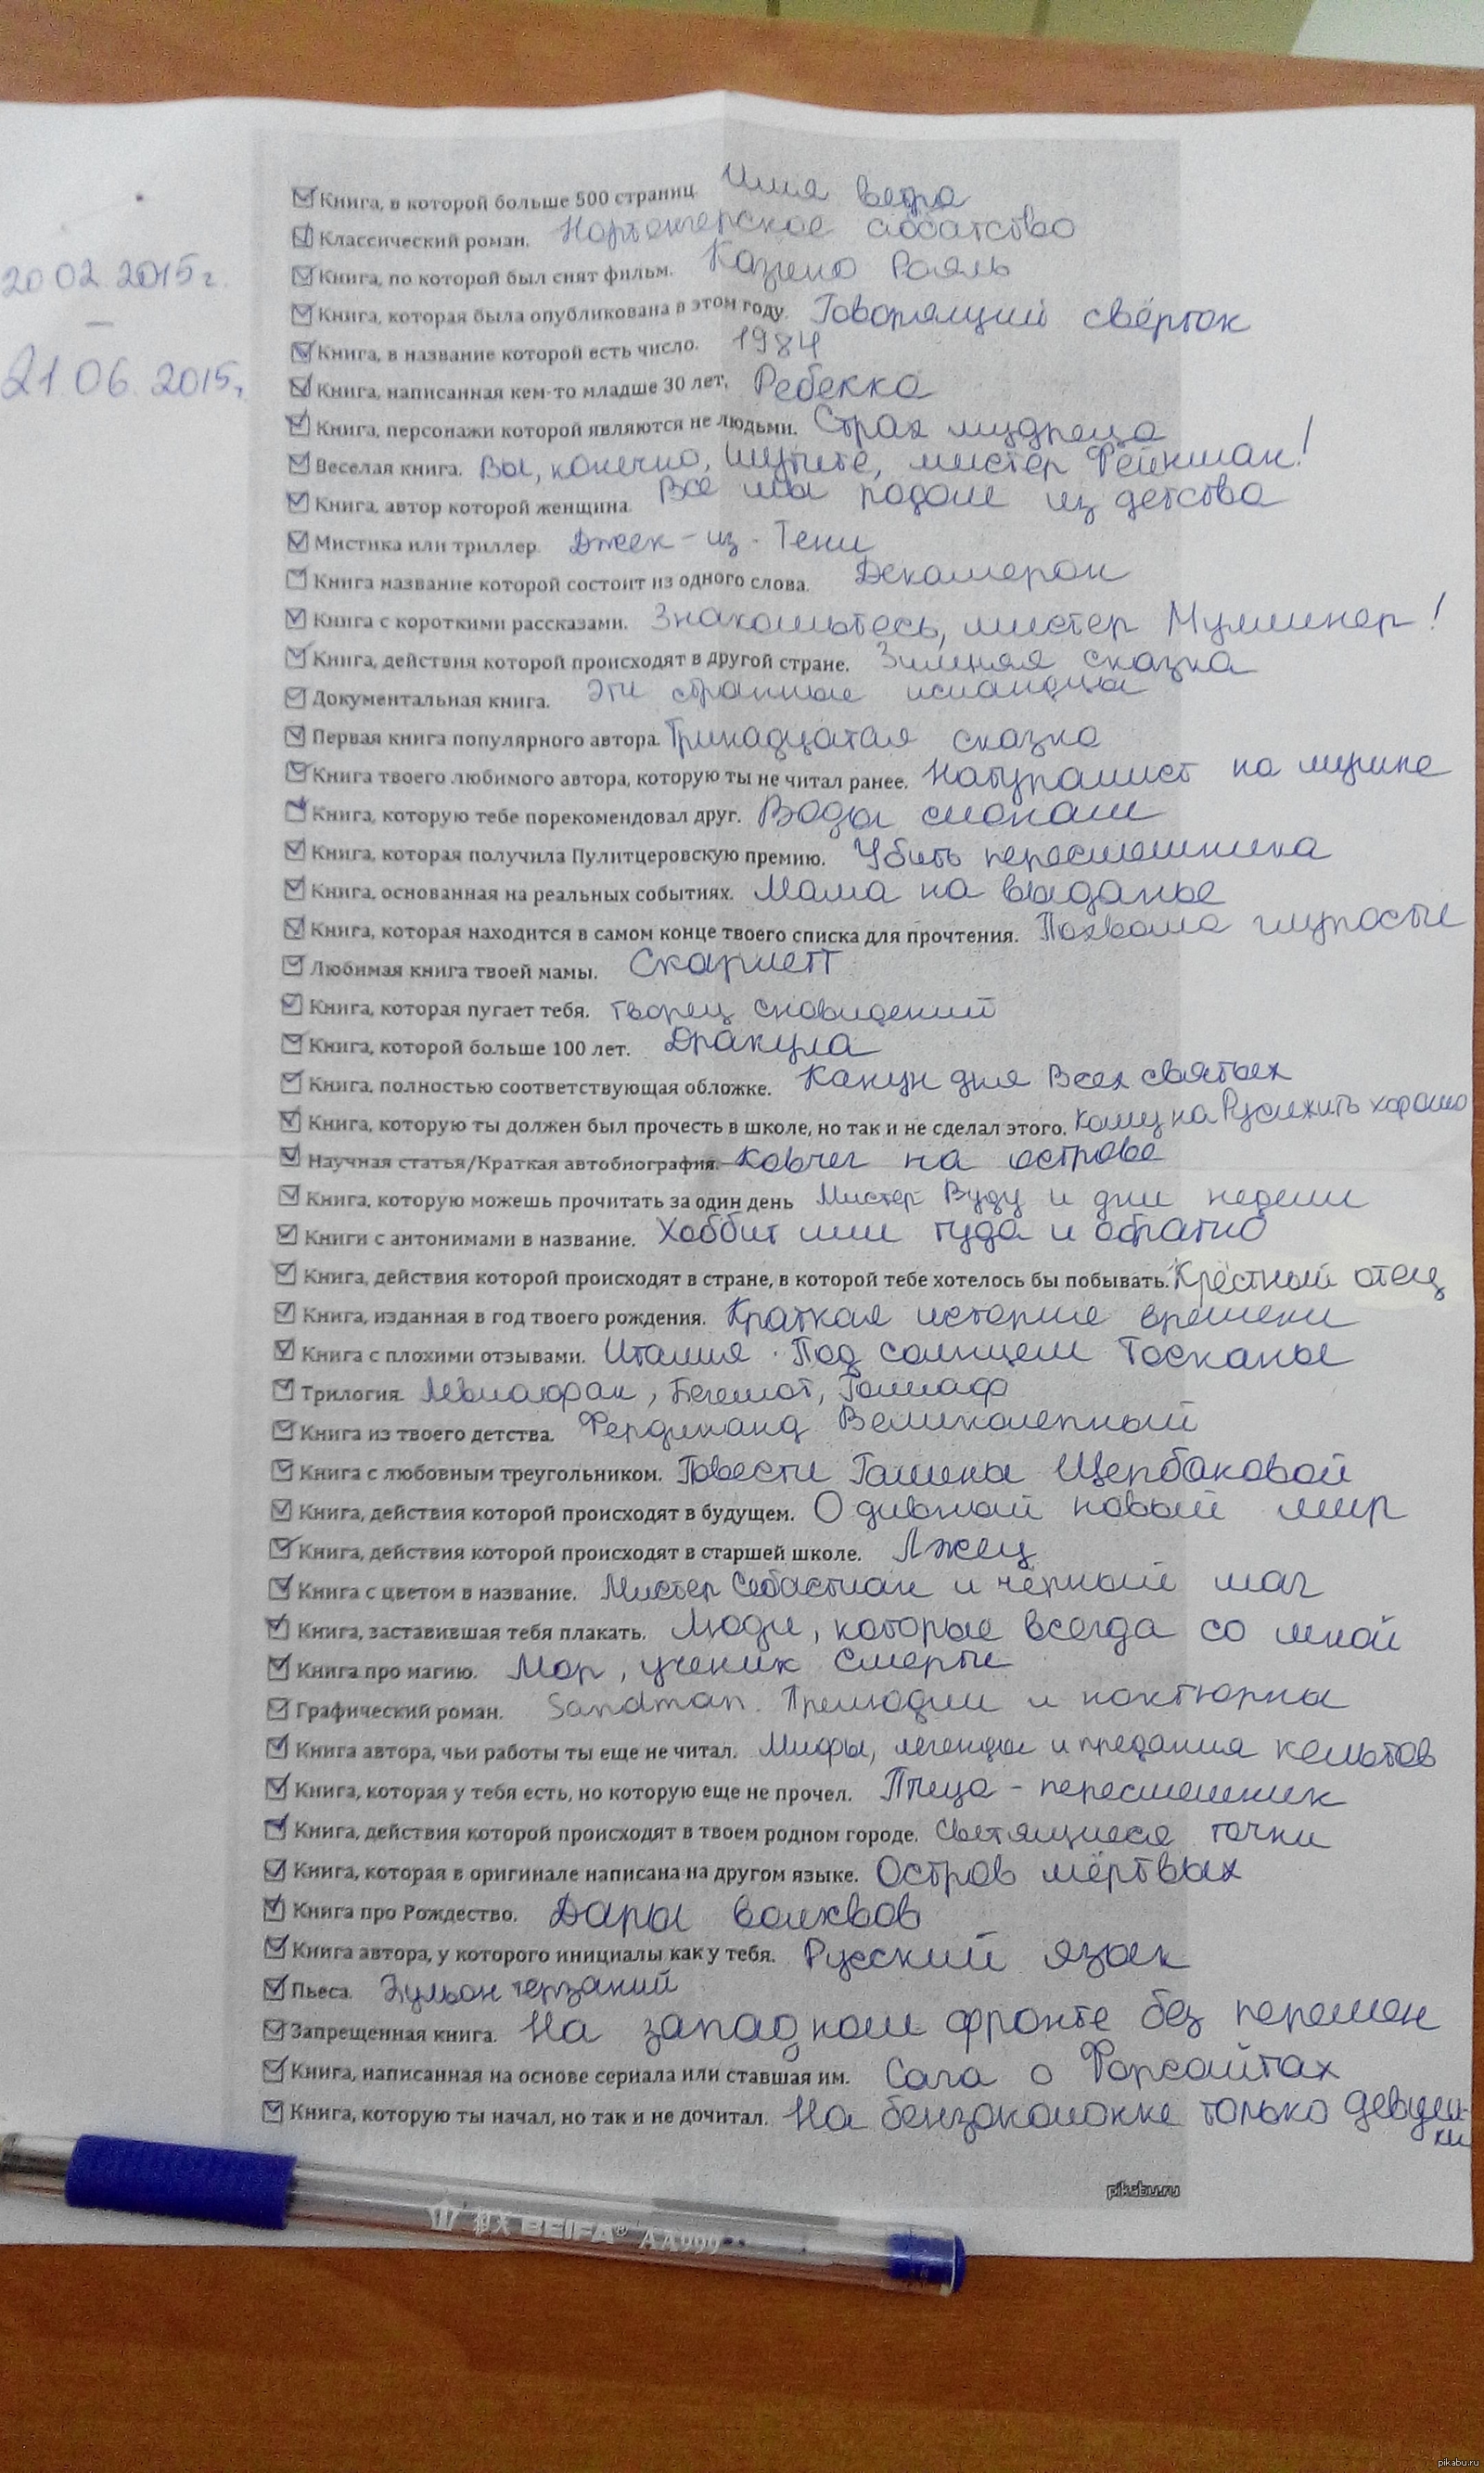 ☑ Книга, в которой больше 500 страниц. Имя ветра
☑ Классический роман. Нортенгерское аббатство
20.02.2015г.
☑ Книга, по которой был снят фильм. Казино Рояль
☑ Книга, которая была опубликована в этом году. Говорящий свёрток
—
☑ Книга, в название которой есть число. 1984
21.06.2015г.
☑ Книга, написанная кем-то младше 30 лет. Ребекка
☑ Книга, персонажи которой являются не людьми. Страх мудреца
☑ Веселая книга. Вы, конечно, шутите, мистер Фейнман!
☑ Книга, автор которой женщина. Все мы родом из детства
☑ Мистика или триллер. Джек-из-Тени
☑ Книга название которой состоит из одного слова. Декамерон
☑ Книга с короткими рассказами. Знакомьтесь, мистер Муллинер!
☑ Книга, действия которой происходят в другой стране. Зимняя сказка
☑ Документальная книга. Эти странные испанцы
☑ Первая книга популярного автора. Тринадцатая сказка
☑ Книга твоего любимого автора, которую ты не читал ранее. Натуралист на мушке
☑ Книга, которую тебе порекомендовал друг. Воды слонам
☑ Книга, которая получила Пулитцеровскую премию. Убить пересмешника
☑ Книга, основанная на реальных событиях. Мама на выданье
☑ Книга, которая находится в самом конце твоего списка для прочтения. Похвала глупости
☑ Любимая книга твоей мамы. Скарлетт
☑ Книга, которая пугает тебя. Творец сновидений
☑ Книга, которой больше 100 лет. Дракула
☑ Книга, полностью соответствующая обложке. Канун дня Всех святых
☑ Книга, которую ты должен был прочесть в школе, но так и не сделал этого. Кому на Руси жить хорошо
☑ Научная статья/Краткая автобиография. Ковчег на острове
☑ Книга, которую можешь прочитать за один день Мистер Вуду и дни недели
☑ Книги с антонимами в название. Хоббит или туда и обратно
☑ Книга, действия которой происходят в стране, в которой тебе хотелось бы побывать. Крёстный отец
☑ Книга, изданная в год твоего рождения. Краткая история времени
☑ Книга с плохими отзывами. Италия. Под солнцем Тосканы
☑ Трилогия. Левиафан, Бегемот, Голиаф
☑ Книга из твоего детства. Фердинанд Великолепный
☑ Книга с любовным треугольником. Повести Галины Щербаковой
☑ Книга, действия которой происходят в будущем. О дивный новый мир
☑ Книга, действия которой происходят в старшей школе. Лжец
☑ Книга с цветом в название. Мистер Себастиан и чёрный маг
☑ Книга, заставившая тебя плакать. Люди, которые всегда со мной
☑ Книга про магию. Мор, ученик Смерти
☑ Графический роман. Sandman. Прелюдии и ноктюрны
☑ Книга автора, чьи работы ты еще не читал. Мифы, легенды и предания кельтов
☑ Книга, которая у тебя есть, но которую еще не прочел. Птица-пересмешник
☑ Книга, действия которой происходят в твоем родном городе. Светящиеся точки
☑ Книга, которая в оригинале написана на другом языке. Остров мёртвых
☑ Книга про Рождество. Дары волхвов
☑ Книга автора, у которого инициалы как у тебя. Русский язык
☑ Пьеса. Бульон терзаний
☑ Запрещенная книга. На западном фронте без перемен
☑ Книга, написанная на основе сериала или ставшая им. Сага о Форсайтах
☑ Книга, которую ты начал, но так и не дочитал. На бензоколонке только девуш-
ки
pikabu.ru
BEIFA® AA999
pikabu.ru